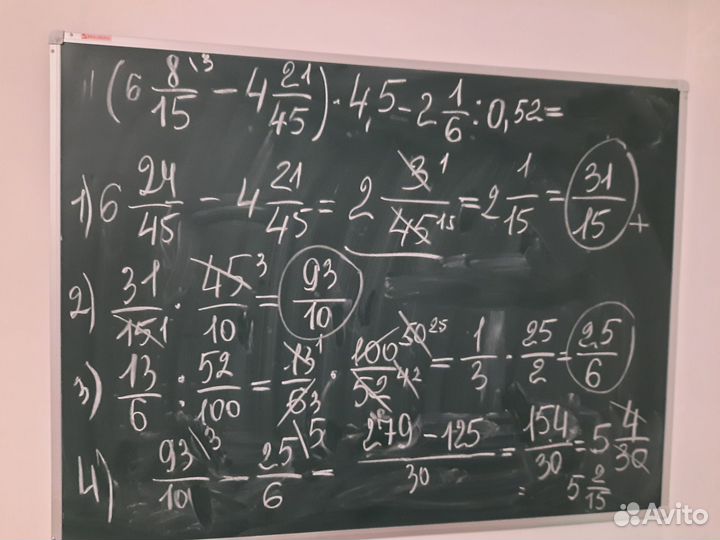 (6 8/15 \3 - 4 21/45) · 4,5 - 2 1/6 : 0,52 =
1) 6 24/45 - 4 21/45 = 2 3 1/45 15 = 2 1/15 = 31/15 +
2) 31/15 1 · 45 3/10 = 93/10
3) 13/6 : 52/100 = 13 1/6 3 · 100 50 25/52 4 2 = 1/3 · 25/2 = 25/6
4) 93/10 \3 - 25/6 \5 = 279 - 125/30 = 154/30 = 5 4/30
= 5 2/15
Avito